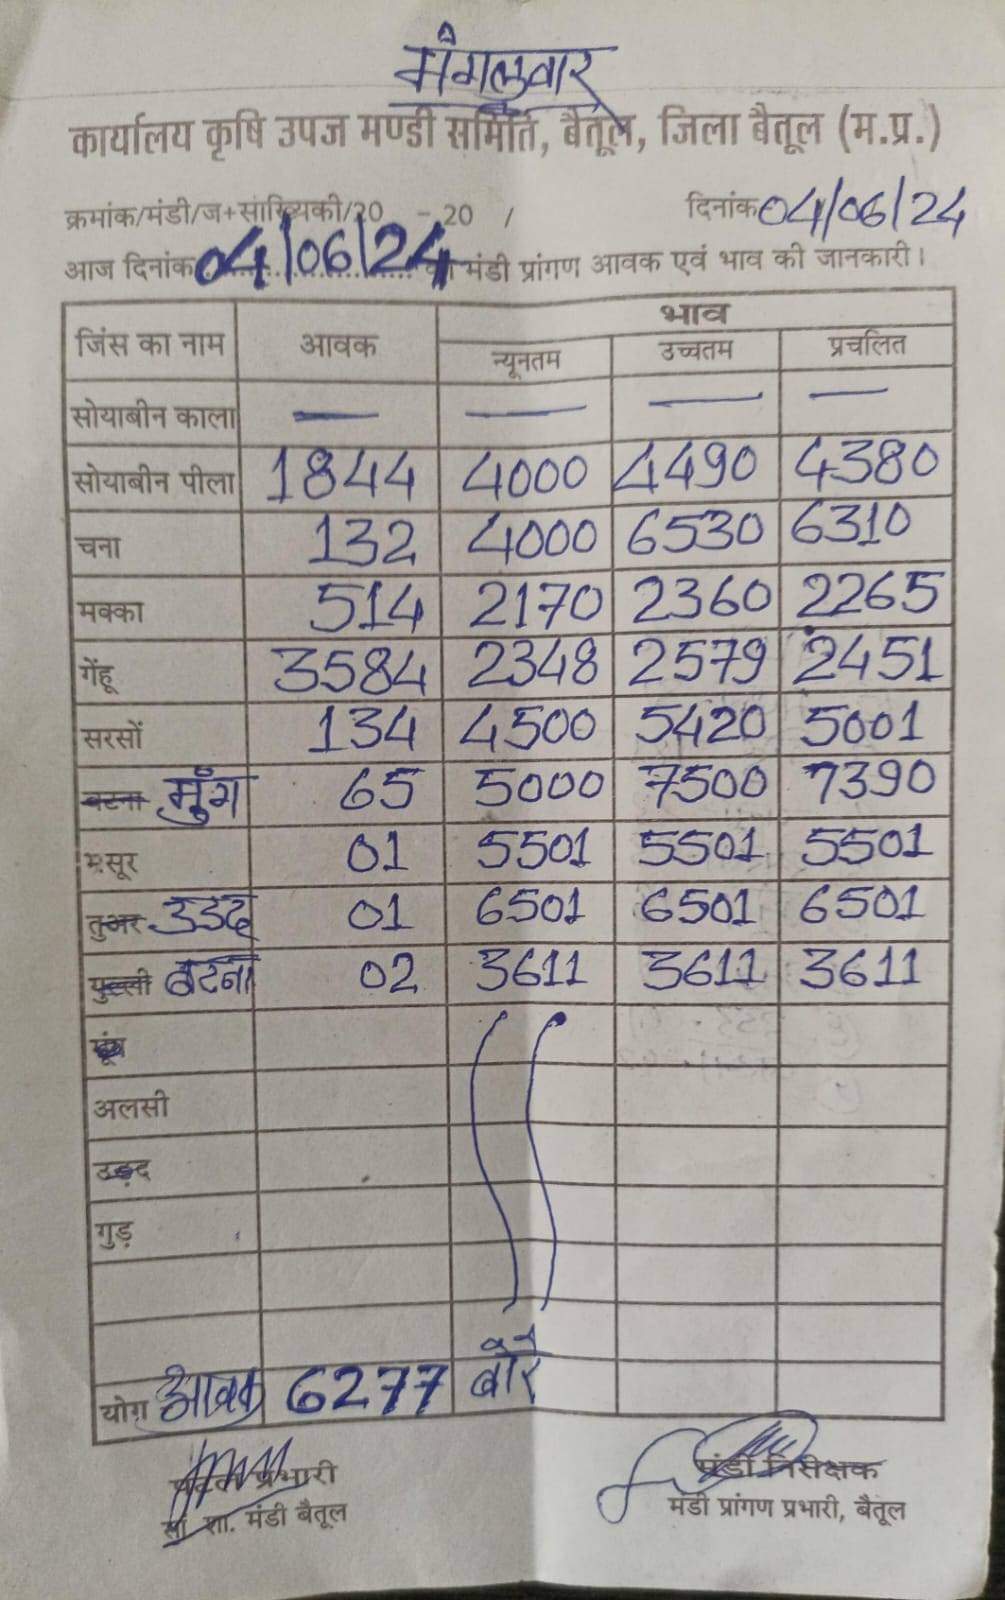 मंगलवार
कार्यालय कृषि उपज मण्डी समिति, बैतूल, जिला बैतूल (म.प्र.)
क्रमांक/मंडी/ज+सांख्यिकी/20 - 20 / दिनांक 04/06/24
आज दिनांक 04/06/24 को मंडी प्रांगण आवक एवं भाव की जानकारी।
जिंस का नाम आवक भाव
न्यूनतम उच्चतम प्रचलित
सोयाबीन काला — — — —
सोयाबीन पीला 1844 4000 4490 4380
चना 132 4000 6530 6310
मक्का 514 2170 2360 2265
गेंहू 3584 2348 2579 2451
सरसों 134 4500 5420 5001
बटना मुँग 65 5000 7500 7390
मसूर 01 5501 5501 5501
तुअर उडद 01 6501 6501 6501
बटना 02 3611 3611 3611
अलसी
उड़द
गुड़
योग आवक 6277 बोरे
प्रभारी मंडी निरीक्षक
सां. शा. मंडी बैतूल मंडी प्रांगण प्रभारी, बैतूल